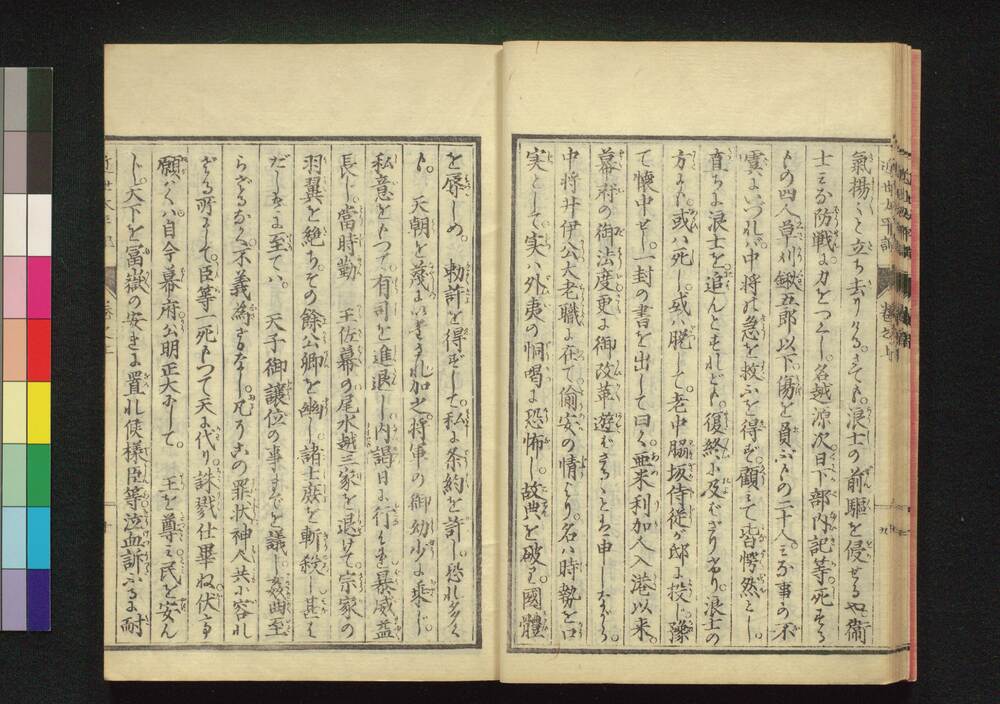 氣揚〻と立ち去りける。さても浪士の前驅を侵せるや衞
士ミな防戦に力をつくし。名越源次。日下部内記等。死する
もの四人草刈鍬五郎以下。傷を負ふもの二十人。ミな事の不
虞にいづれバ中将の急を救ふを得ず。顧ミて皆愕然とし。
直ちに浪士を追んとすれども。復終に及ばざりけり。浪士の
方にも。或ハ死し。或ハ脱して。老中脇坂侍從が邸に投じ。豫
て懷中せし一封の書を出して曰く。亜米利加人入港以来。
幕府の御法度更に御改革遊ばさるゝことも申しながら。
中将井伊公大老職に在て。偷安の情より。名ハ時勢を口
実として。実ハ外夷の恫喝に恐怖し。故典を破り。國體
を辱しめ。　勅許を得ずして。私に条約を許し。恐れ多く
も。　天朝を蔑にいたされ加之。将軍の御幼少に乗じ。
私意をもつて。有司を進退し。内謁日に行はれ暴威益
長じ。當時勤　王佐幕の尾水越三家を退けて。宗家の
羽翼を絶ち。その餘公卿を幽し。諸士庶を斬殺し。其は
だしきに至てハ。　天子御讓位の事までを議し。姦曲至
らざるなく。不義為ざるなし。凡そこの罪状神人共に容れ
ざる所にして。臣等一死もつて天に代り。誅戮仕畢ぬ伏し
願くハ自今幕府公明正大にして。　王を尊ミ。民を安ん
じ。天下を冨嶽の安きに置れ候様。臣等泣血訴ふるに耐